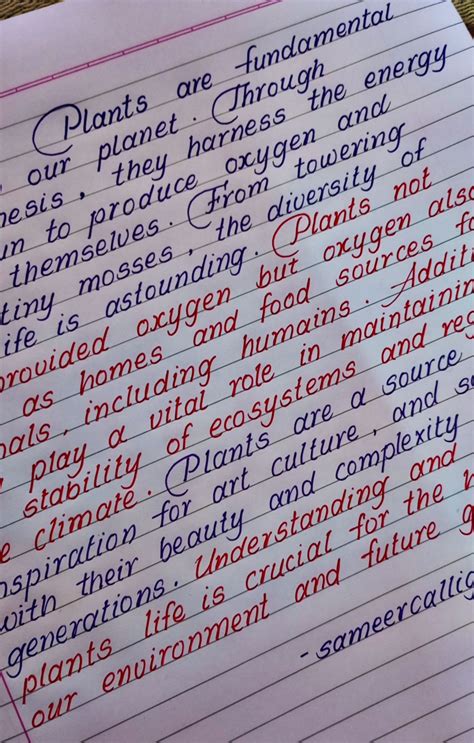 Plants are fundamental
our planet. Through
nesis, they harness the energy
un to produce oxygen and
themselves. From towering
tiny mosses, the diversity of
ife is astounding. Plants not
provided oxygen but oxygen also
as homes and food sources fo
nals, including humains. Additi
play a vital role in maintainin
stability of ecosystems and reg
e climate. Plants are a source
nspiration for art culture, and s
with their beauty and complexity
generations. Understanding and
plants life is crucial for the h
our environment and future g
- sameercallig